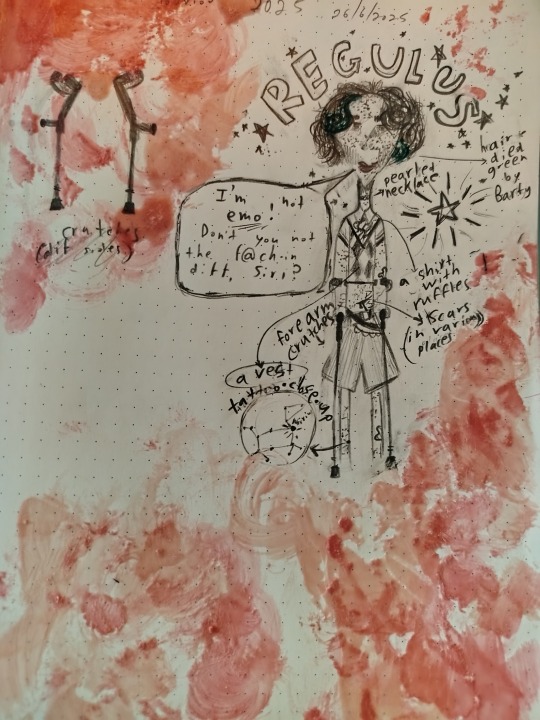 2025 26/6/2025
REGULUS
hair
died
green
by
Barty
pearled
necklace
I'm not
emo!
Don't you not
the f@ch-in
diff, Siri?
crutches
(dif sides)
a shirt
with
ruffles
scars
(in various
places)
forearm
crutches
a vest
tattoo close-up